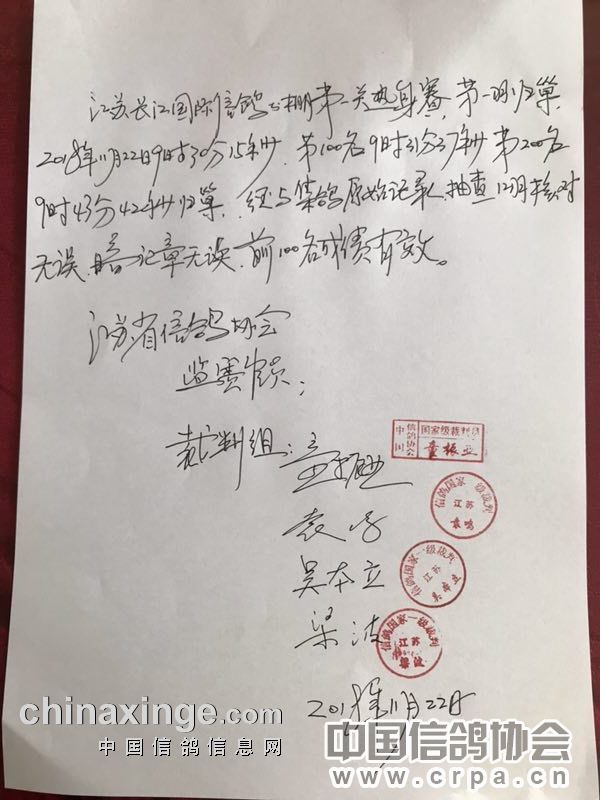 江苏长江国际信鸽公棚第一关热身赛,第一羽归巢
2018年11月22日9时30分15秒,第100名9时31分37秒 第200名
9时43分42秒归巢,经与集鸽原始记录,抽查12羽核对
无误,暗记章无误,前100名成绩有效。
江苏省信鸽协会
监赛
裁判组:
童振亚
袁鸣
吴本立
梁波
2018年11月22日
中国信鸽协会 国家级裁判员 童振亚
信鸽国家一级裁判
江苏
袁鸣
信鸽国家一级裁判
江苏
吴本立
信鸽国家一级裁判
江苏
梁波
chinaxinge.com
中国信鸽信息网
中国信鸽协会
www.crpa.cn